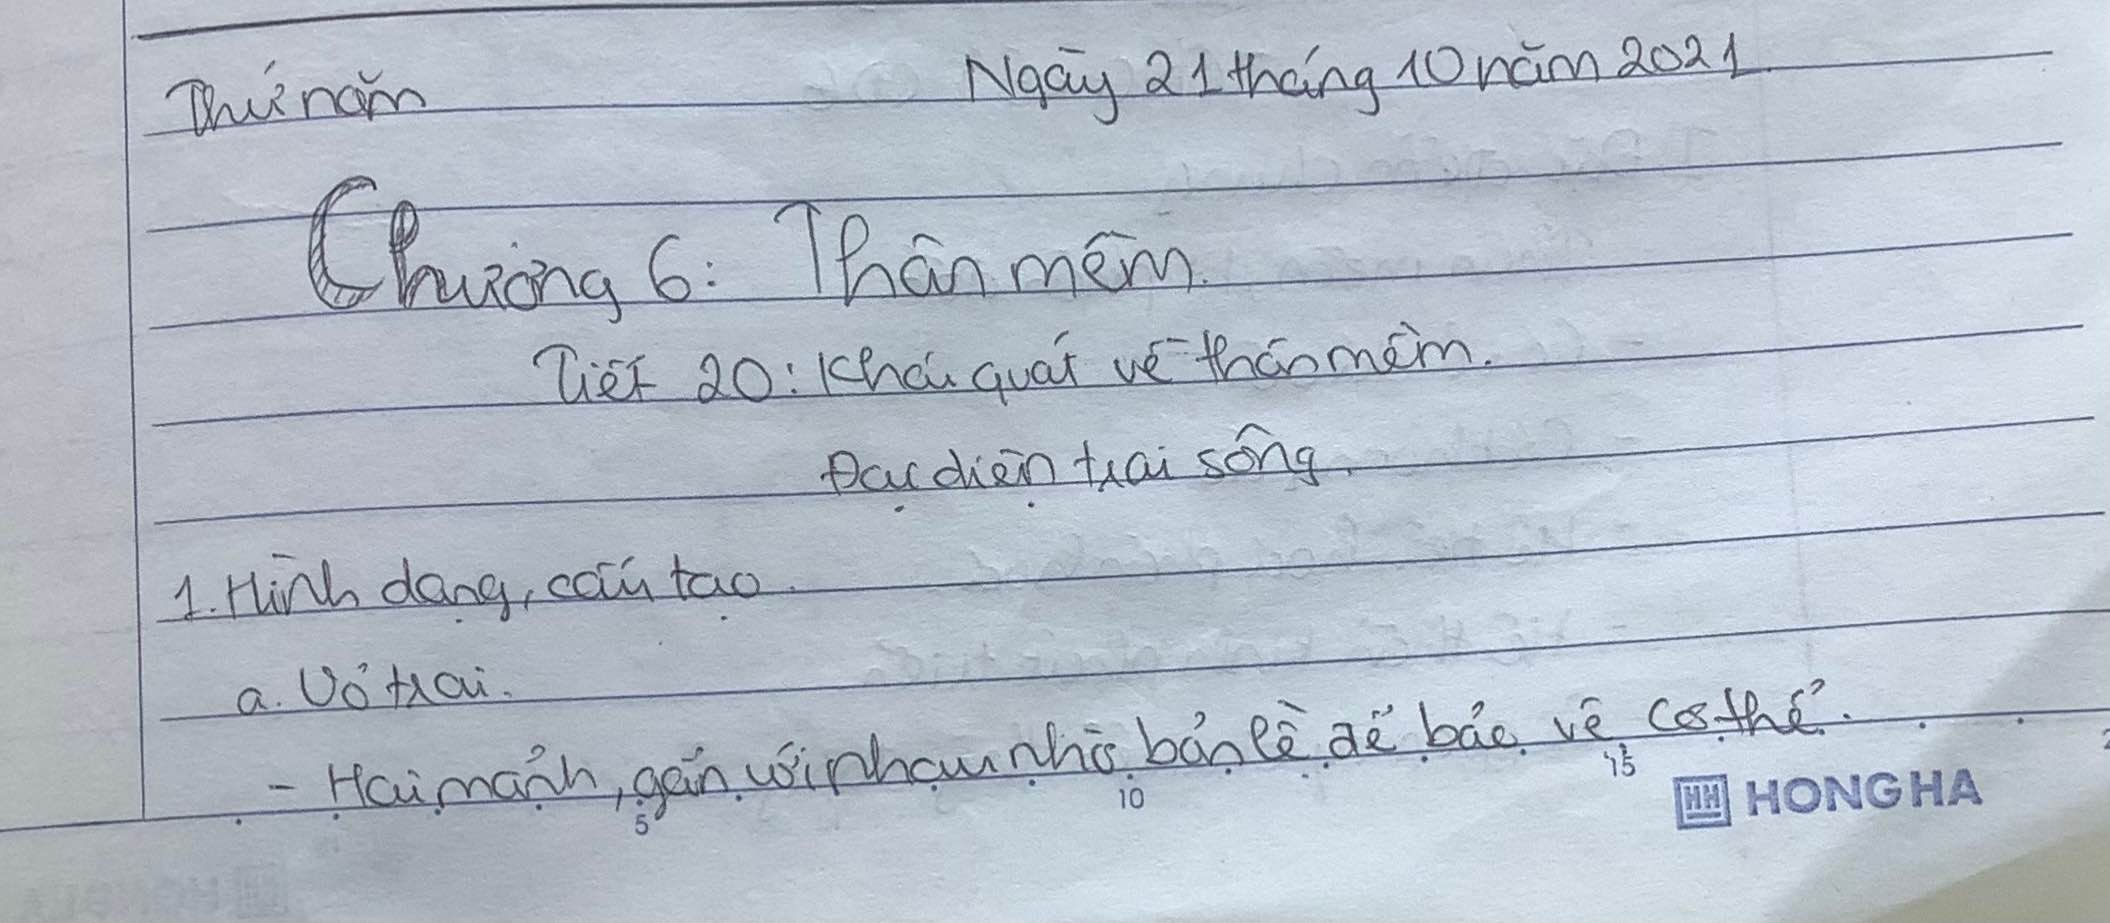 Thứ năm Ngày 21 tháng 10 năm 2021
Chương 6: Thân mềm.
Tiết 20: Khái quát về thân mềm.
Đại diện trai sông.
1. Hình dạng, cấu tạo.
a. Vỏ trai.
- Hai mảnh, gắn với nhau nhờ bản lề để bảo vệ cơ thể.
5 10 15
HH HONG HA